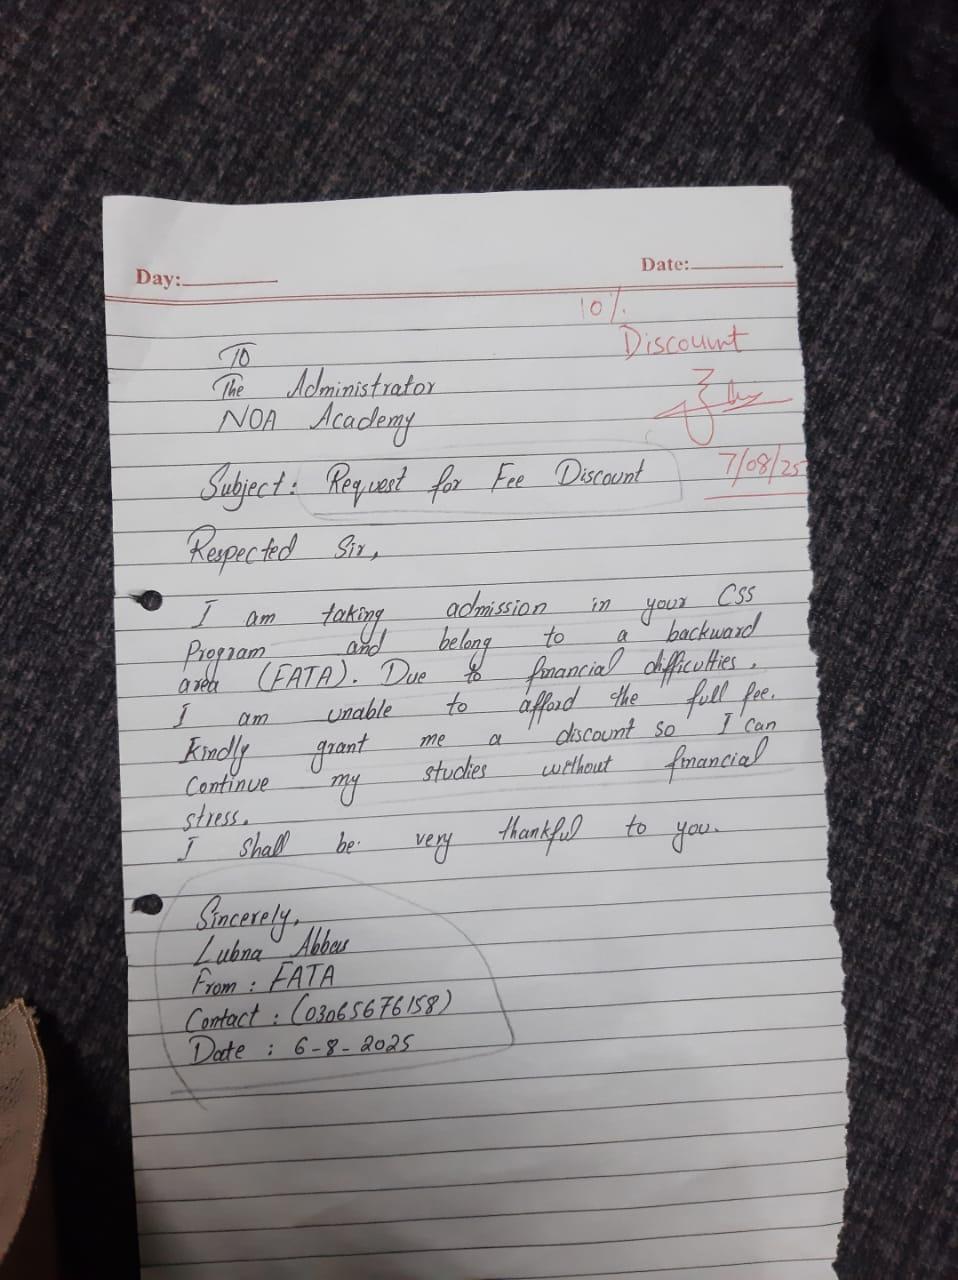 Day:
Date:
10%
Discount
7/08/25
To
The Administrator
NOA Academy
Subject: Request for Fee Discount
Respected Sir,
I am taking admission in your CSS
Program and belong to a backward
area (FATA). Due to financial difficulties.
I am unable to afford the full fee.
Kindly grant me a discount so I can
Continue my studies without financial
stress.
I shall be very thankful to you.
Sincerely,
Lubna Abbas
From : FATA
Contact : (03065676158)
Date : 6-8-2025